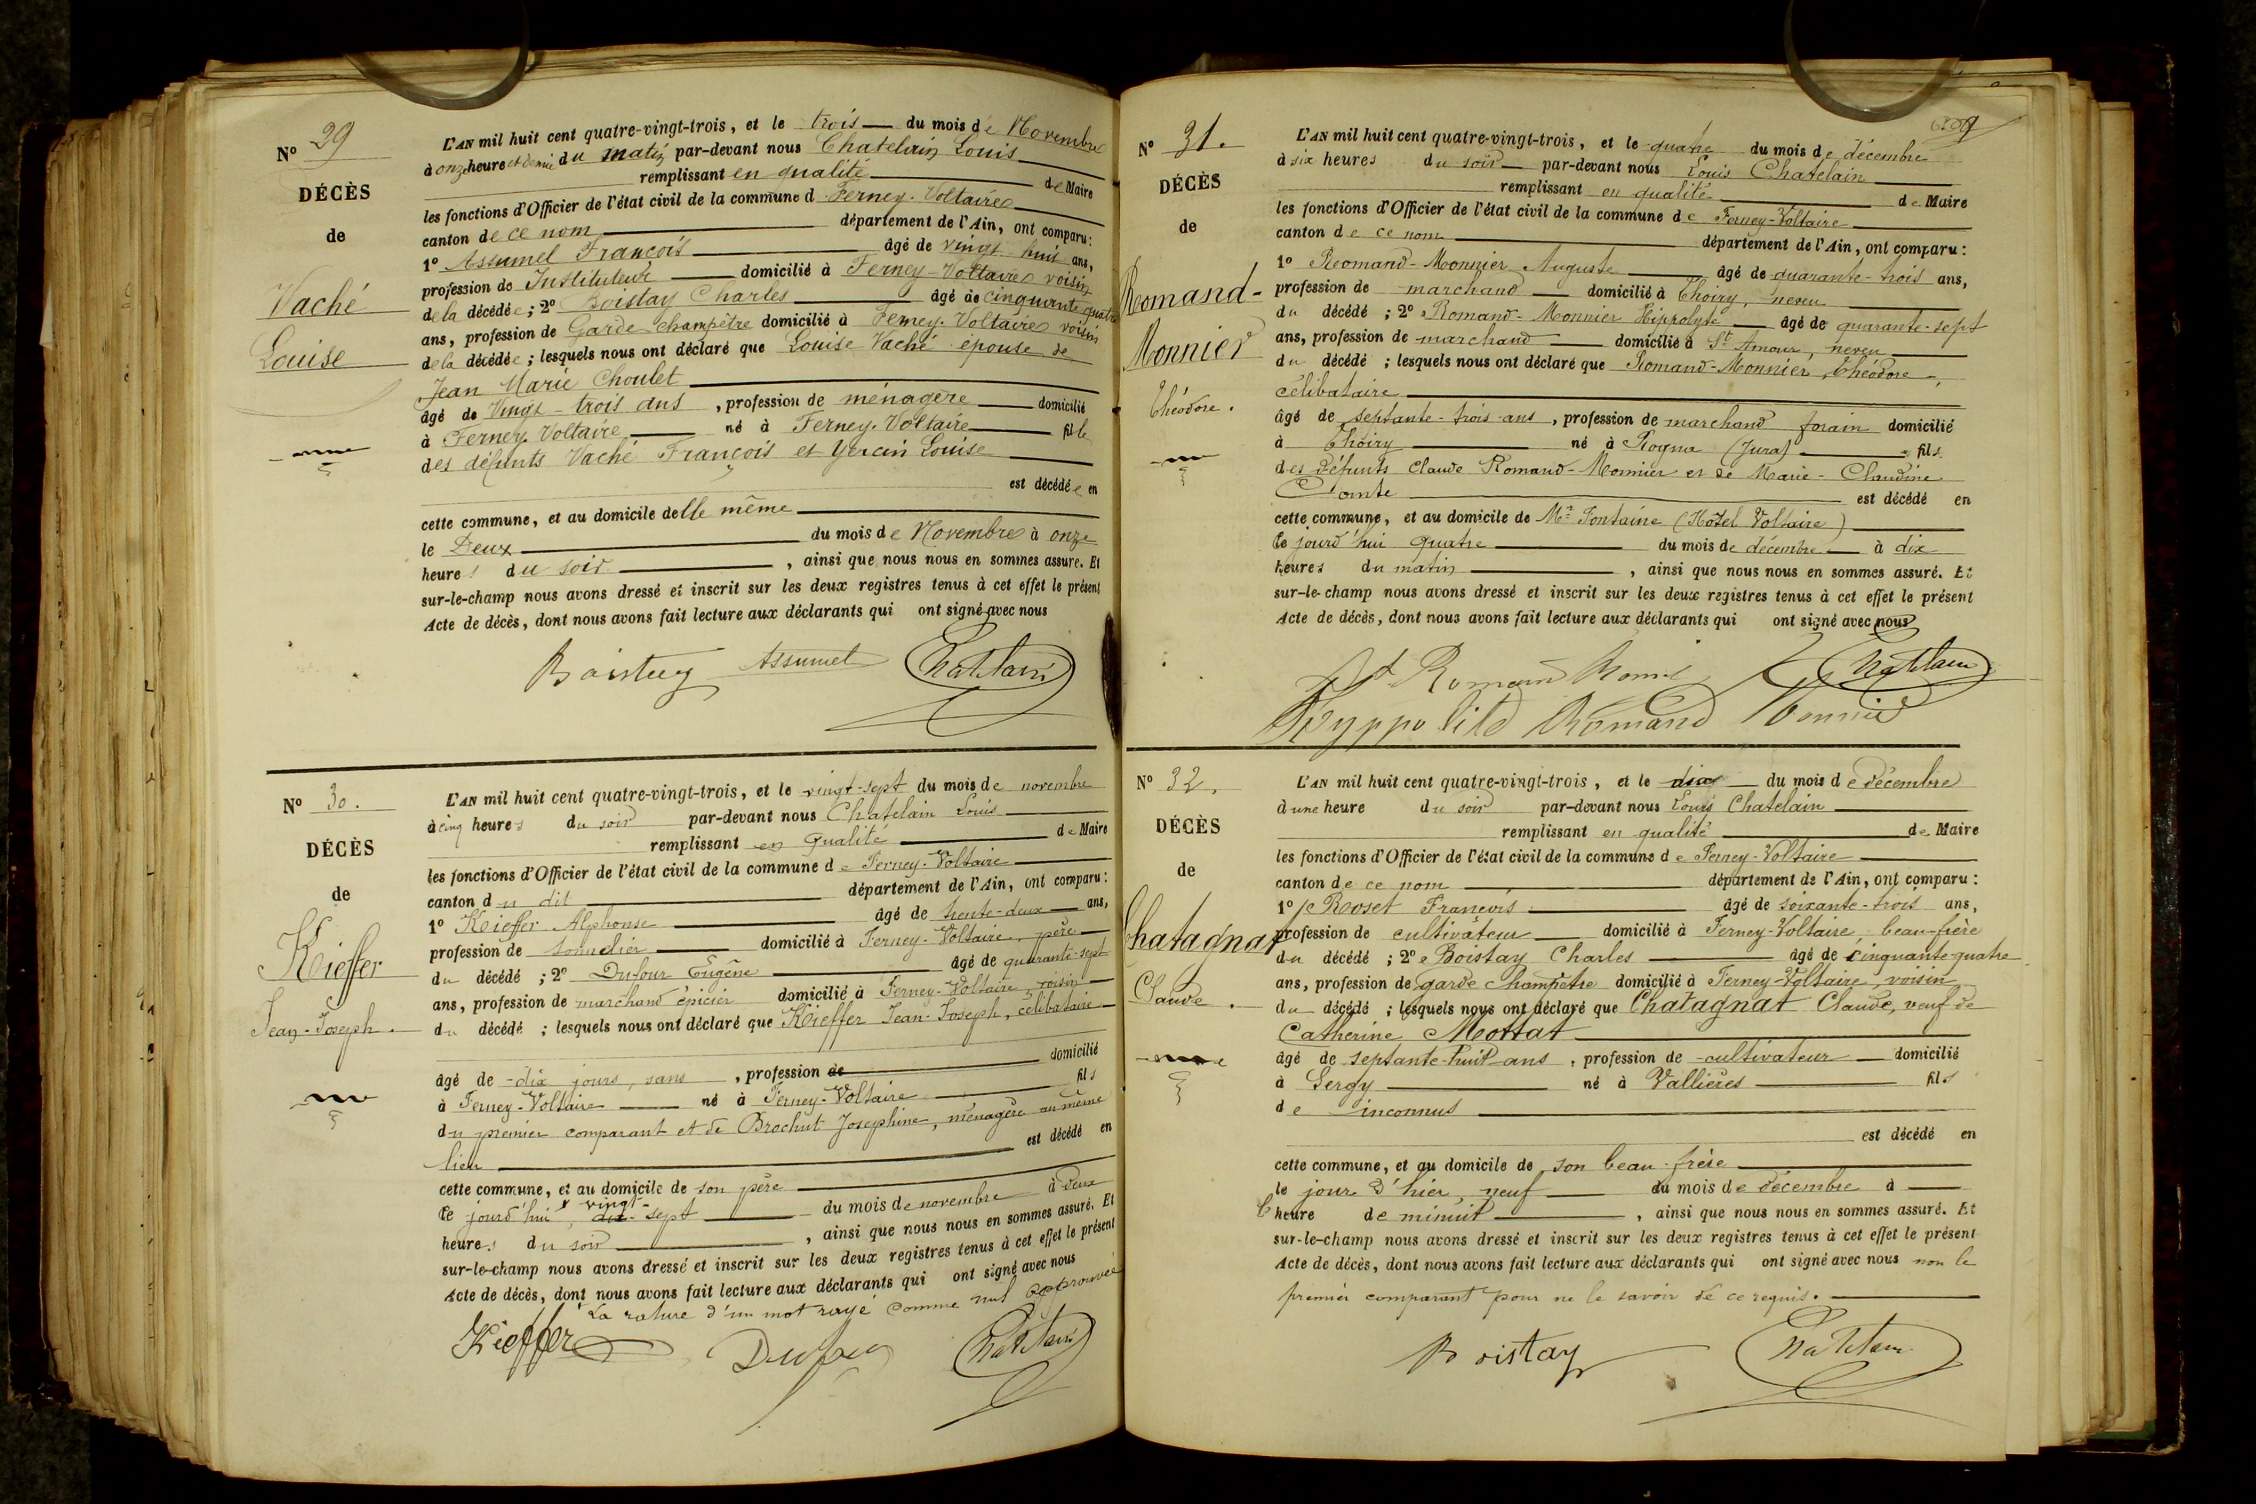 Nº 29
DÉCÈS
de
Vaché
Louise
L'AN mil huit cent quatre-vingt-trois, et le trois du mois de Novembre
à onze heure et demie du matin par-devant nous Chatelain Louis
remplissant en qualité de Maire
les fonctions d'Officier de l'état civil de la commune d Ferney-Voltaire
canton de ce nom département de l'Ain, ont comparu:
1º Assumel François âgé de vingt huit ans,
profession de Instituteur domicilié à Ferney-Voltaire voisin
de la décédée; 2º Boistay Charles âgé de cinquante quatre
ans, profession de Garde champêtre domicilié à Ferney-Voltaire voisin
de la décédée; lesquels nous ont déclaré que Louise Vaché épouse de
Jean Marie Choulet
âgé de Vingt-trois ans, profession de ménagère domicilié
à Ferney-Voltaire né à Ferney-Voltaire fille
des défunts Vaché François et Yercin Louise
est décédée en
cette commune, et au domicile delle même
le Deux du mois de Novembre à onze
heures du soir, ainsi que nous nous en sommes assuré. Et
sur-le-champ nous avons dressé et inscrit sur les deux registres tenus à cet effet le présent
Acte de décès, dont nous avons fait lecture aux déclarants qui ont signé avec nous
Boistay Assumel Chatelain
Nº 30.
DÉCÈS
de
Kieffer
Jean-Joseph.
L'AN mil huit cent quatre-vingt-trois, et le vingt-sept du mois de novembre
à cinq heures du soir par-devant nous Chatelain Louis
remplissant en qualité de Maire
les fonctions d'Officier de l'état civil de la commune de Ferney-Voltaire
canton du dit département de l'Ain, ont comparu:
1º Kieffer Alphonse âgé de trente-deux ans,
profession de tonnelier domicilié à Ferney-Voltaire, père
du décédé; 2º Dufour Eugêne âgé de quarante-sept
ans, profession de marchand épicier domicilié à Ferney-Voltaire, voisin
du décédé; lesquels nous ont déclaré que Kieffer Jean-Joseph, célibataire
âgé de dix jours, sans, profession de domicilié
à Ferney-Voltaire né à Ferney-Voltaire fils
du premier comparant et de Brochut Joséphine, ménagère au même
lieu est décédé en
cette commune, et au domicile de son père
le jourd'hui, vingt-dix-sept du mois de novembre à deux
heures du soir, ainsi que nous nous en sommes assuré. Et
sur-le-champ nous avons dressé et inscrit sur les deux registres tenus à cet effet le présent
Acte de décès, dont nous avons fait lecture aux déclarants qui ont signé avec nous
La rature d'un mot rayé comme nul approuvée
Kieffer Dufour Chatelain
Nº 31.
DÉCÈS
de
Romand-
Monnier
Théodore.
L'AN mil huit cent quatre-vingt-trois, et le quatre du mois de décembre
à six heures du soir par-devant nous Louis Chatelain
remplissant en qualité de Maire
les fonctions d'Officier de l'état civil de la commune de Ferney-Voltaire
canton de ce nom département de l'Ain, ont comparu:
1º Romand-Monnier Auguste âgé de quarante-trois ans,
profession de marchand domicilié à Thoiry, neveu
du décédé; 2º Romand-Monnier Hippolyte âgé de quarante-sept
ans, profession de marchand domicilié à St Amour, neveu
du décédé; lesquels nous ont déclaré que Romand-Monnier, Théodore,
célibataire
âgé de septante-trois ans, profession de marchand forain domicilié
à Thoiry né à Rogna (Jura) fils
des défunts Claude Romand-Monnier et de Marie-Claudine
Comte est décédé en
cette commune, et au domicile de Mr Fontaine (Hôtel Voltaire)
le jourd'hui quatre du mois de décembre à dix
heures du matin, ainsi que nous nous en sommes assuré. Et
sur-le-champ nous avons dressé et inscrit sur les deux registres tenus à cet effet le présent
Acte de décès, dont nous avons fait lecture aux déclarants qui ont signé avec nous
Chatelain
Hyppolite Romand Monnier
Nº 32.
DÉCÈS
de
Chatagnat
Claude.
L'AN mil huit cent quatre-vingt-trois, et le dix du mois de décembre
à une heure du soir par-devant nous Louis Chatelain
remplissant en qualité de Maire
les fonctions d'Officier de l'état civil de la commune de Ferney-Voltaire
canton de ce nom département de l'Ain, ont comparu:
1º Roset François âgé de soixante-trois ans,
profession de cultivateur domicilié à Ferney-Voltaire, beau-frère
du décédé; 2º Boistay Charles âgé de cinquante-quatre
ans, profession de garde Champêtre domicilié à Ferney-Voltaire, voisin
du décédé; lesquels nous ont déclaré que Chatagnat Claude, veuf de
Catherine Mottat
âgé de septante-huit ans, profession de cultivateur domicilié
à Sergy né à Vallières fils
de inconnus
est décédé en
cette commune, et au domicile de son beau-frère
le jour d'hier, neuf du mois de décembre à
l'heure de minuit, ainsi que nous nous en sommes assuré. Et
sur-le-champ nous avons dressé et inscrit sur les deux registres tenus à cet effet le présent
Acte de décès, dont nous avons fait lecture aux déclarants qui ont signé avec nous non le
premier comparant pour ne le savoir de ce requis.
Boistay Chatelain